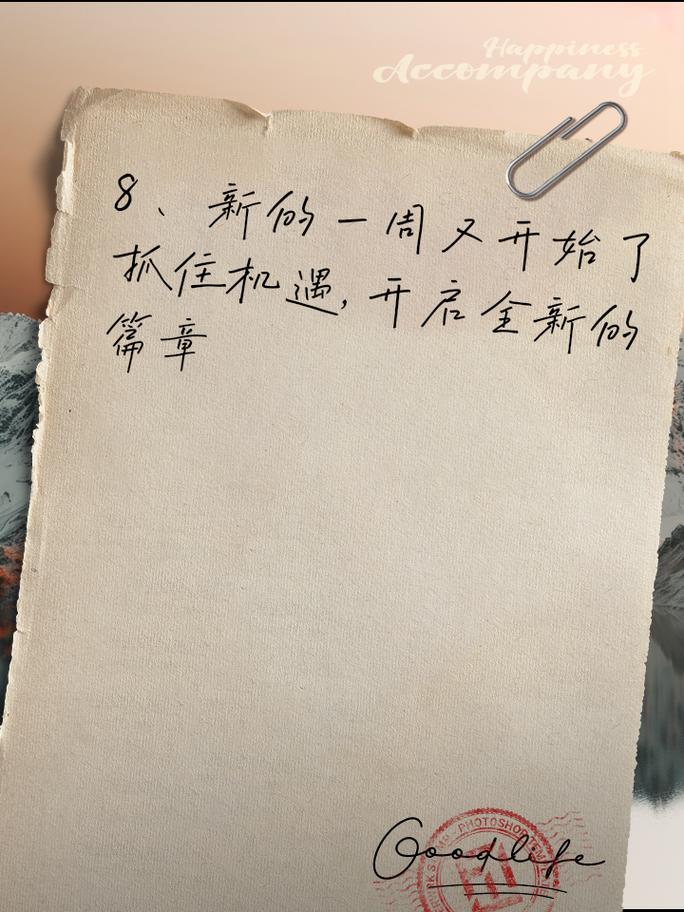 Happiness
Accompany
8、新的一周又开始了
抓住机遇,开启全新的
篇章
PHOTOSHOP
Goodlife